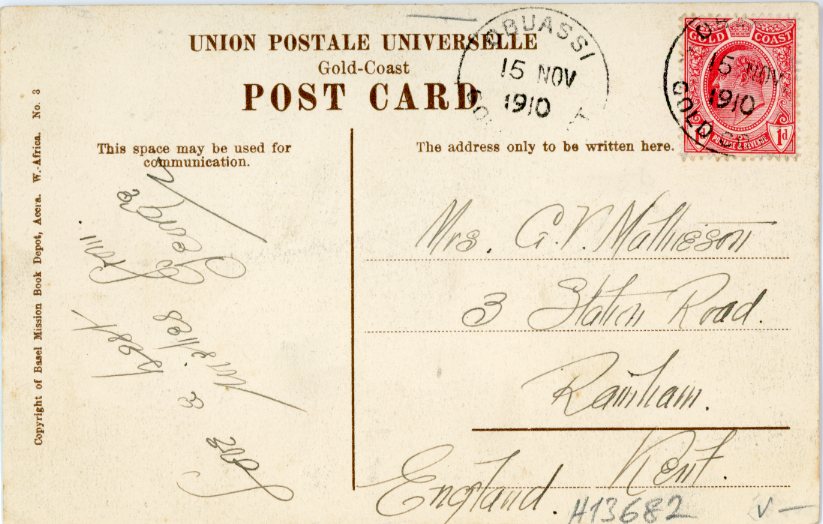 UNION POSTALE UNIVERSELLE
Gold-Coast
POST CARD
OBUASSI
15 NOV
1910
GOLD COAST
15 NOV
1910
GOLD
POSTAGE & REVENUE
1d
This space may be used for
communication.
The address only to be written here.
Copyright of Basel Mission Book Depot, Accra. W.-Africa. No. 3
Love &
best wishes
from
George
Mrs. G. V. Mathieson
3 Station Road.
Rainham.
Kent.
England.
H13682
V-